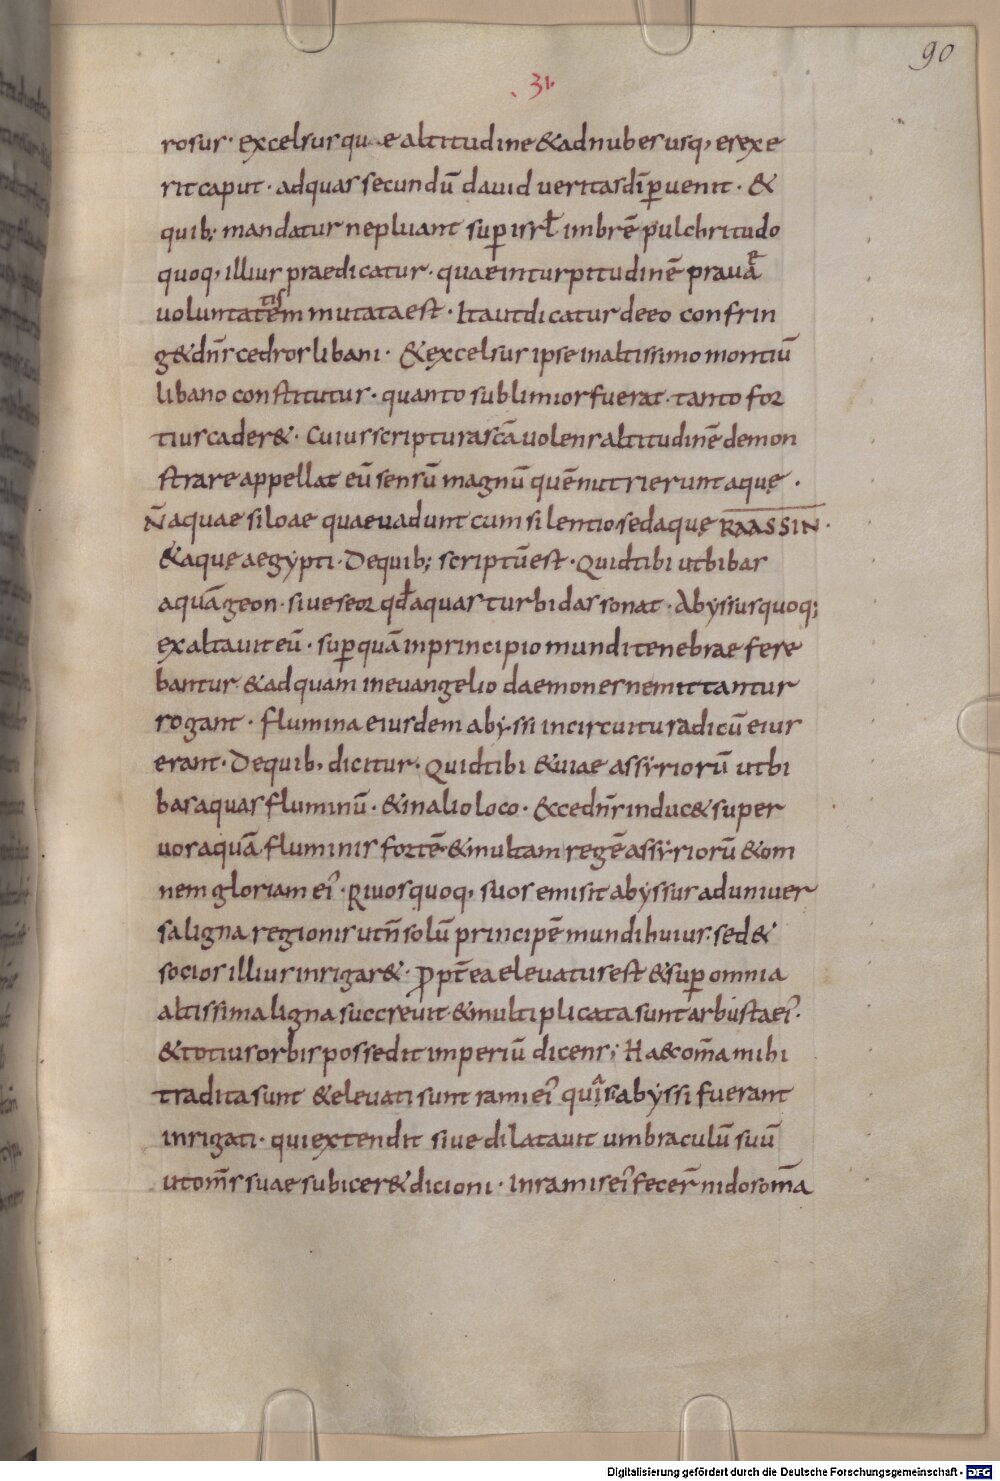 90
31.
rosus· excelsusqu e altitudine & ad nubes usq; erexe
rit caput· ad quas secundū dauid ueritas dī puenit· &
quib; mandatur ne pluant sup isrl imbrē pulchritudo
quoq; illius praedicatur· quae in turpitudinē prauaē
uoluntatem tis mutata est· Ita ut dicatur de eo confrin
g& dn̄s cedros libani· & excelsus ipse in altissimo montiū
libano constitutus· quanto sublimior fuerat· tanto for
tius cader&· Cuius scriptura scā uolens altitudinē demon
strare appellat eū sensū magnū quē nutrierunt aquę·
N̄ aquae siloae quae uadunt cum silentio sed aquę RAASSIN·
& aquę aegypti· De quib; scriptū est· Quid tibi ut bibas
aquā geon· siue seor qđ aquas turbidas sonat· Abyssus quoq;
exaltauit eū· sup quā in principio mundi tenebrae fere
bantur & ad quam in euangelio daemones ne mittantur
rogant· flumina eiusdem abyssi in circuitu radicū eius
erant· De quib; dicitur· Quid tibi & uiae assyriorū ut bi
bas aquas fluminū· & in alio loco· & ecce dn̄s induc& super
uos aquā fluminis fortē & multam regē assyriorū & om
nem gloriam ei'· Riuos quoq; suos emisit abyssus ad uniuer
sa ligna regionis ut n̄ solū principē mundi huius· sed &
socios illius inrigar&· Propt̄ ea eleuatus est & sup omnia
altissima ligna succreuit & multiplicata sunt arbusta ei'·
& totius orbis possedit imperiū dicens; Haec om̄a mihi
tradita sunt & eleuati sunt rami ei' qui aquis abyssi fuerant
inrigati· qui extendit siue dilatauit umbraculū suū
ut om̄s suae subicer& dicioni· In ramis ei' fecer̄ nidos om̄a
Digitalisierung gefördert durch die Deutsche Forschungsgemeinschaft - DFG